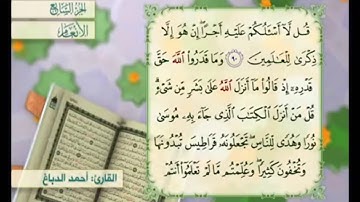 الجزء السابع
الأنعام
قُل لَّآ أَسْـَٔلُكُمْ عَلَيْهِ أَجْرًا ۖ إِنْ هُوَ إِلَّا
ذِكْرَىٰ لِلْعَٰلَمِينَ ٩٠ وَمَا قَدَرُوا۟ ٱللَّهَ حَقَّ
قَدْرِهِۦٓ إِذْ قَالُوا۟ مَآ أَنزَلَ ٱللَّهُ عَلَىٰ بَشَرٍ مِّن شَىْءٍ ۗ
قُلْ مَنْ أَنزَلَ ٱلْكِتَٰبَ ٱلَّذِى جَآءَ بِهِۦ مُوسَىٰ
نُورًا وَهُدًى لِّلنَّاسِ ۖ تَجْعَلُونَهُۥ قَرَاطِيسَ تُبْدُونَهَا
وَتُخْفُونَ كَثِيرًا ۖ وَعُلِّمْتُم مَّا لَمْ تَعْلَمُوٓا۟ أَنتُمْ
القارئ: أحمد الدباغ